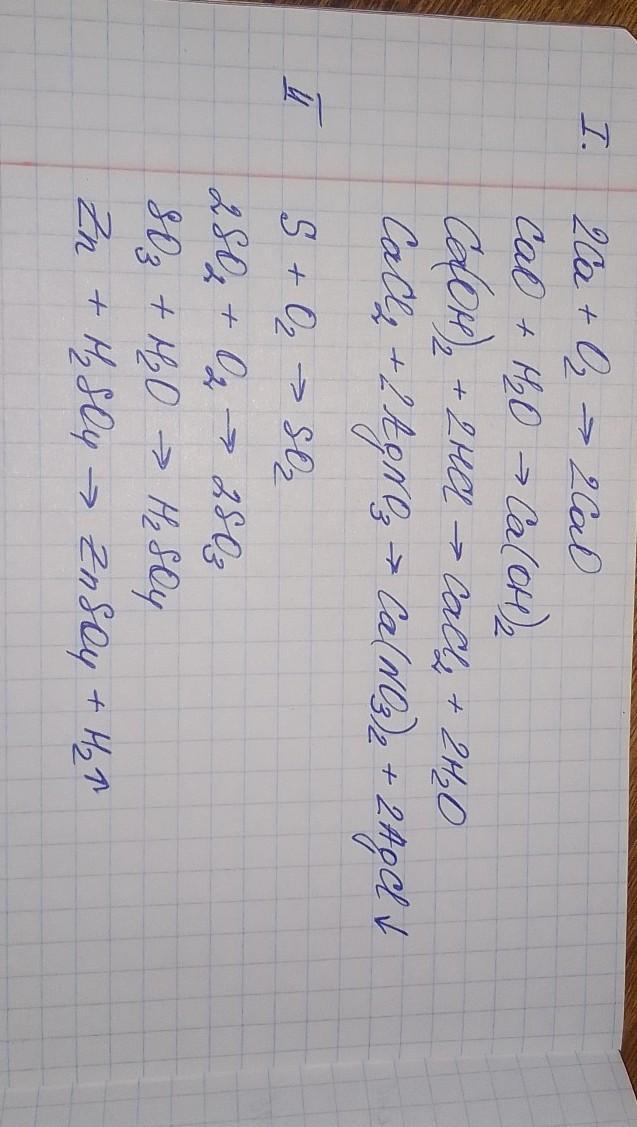 I. 2Ca + O₂ → 2CaO
CaO + H₂O → Ca(OH)₂
Ca(OH)₂ + 2HCl → CaCl₂ + 2H₂O
CaCl₂ + 2AgNO₃ → Ca(NO₃)₂ + 2AgCl↓
II
S + O₂ → SO₂
2SO₂ + O₂ → 2SO₃
SO₃ + H₂O → H₂SO₄
Zn + H₂SO₄ → ZnSO₄ + H₂↑